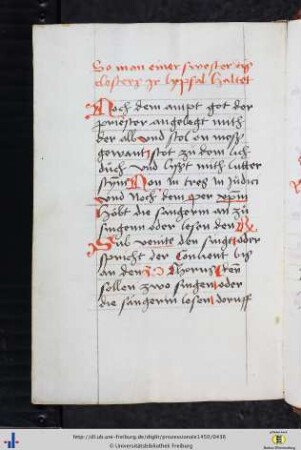 So man einer swoster diß
closters jr lypfal haltet
Noch dem ampt got der
priestor angelegt mith
der alb vnd stol on mess
gewant stot zu dem lich
duͦch vnd lyßt mith lutter
stym Non in tres in Judici
vnd Noch dem per xpm
hebt die sangerin an zu
singenn oder lesen den
Sub venite den singet oder
spricht der Conuent bis
an den Vorus den
sollen zwo singen oder
die sangerin lesen doruff
http://dl.ub.uni-freiburg.de/diglit/prozessionale1450/0436
© Universitätsbibliothek Freiburg